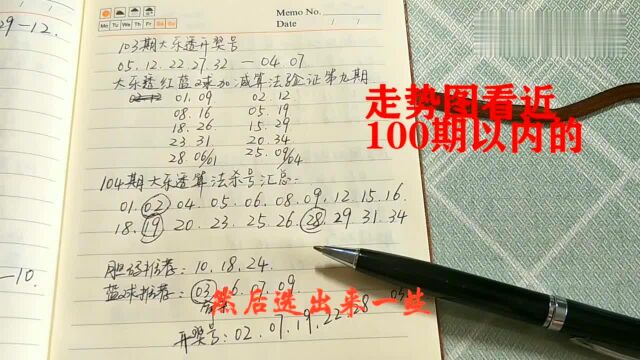 Memo No.
Date / /
Mo Tu We Th Fr Sa Su
29-12.
103期大乐透开奖号
05.12.22.27.32 — 04.07
大乐透红蓝球加减算法验证第九期
01.09 02.12
08.16 05.19
18.26 15.29
23.31 20.34
28.06/01 25.09/04
104期大乐透算法杀号汇总:
01.02.04.05.06.08.09.12.15.16.
18.19.20.23.25.26.28.29.31.34
胆码推荐:10.18.24.
—10.
蓝球推荐:03.06.07.09.
开奖号:02.07.19.22.28
走势图看近
100期以内的
然后选出来一些